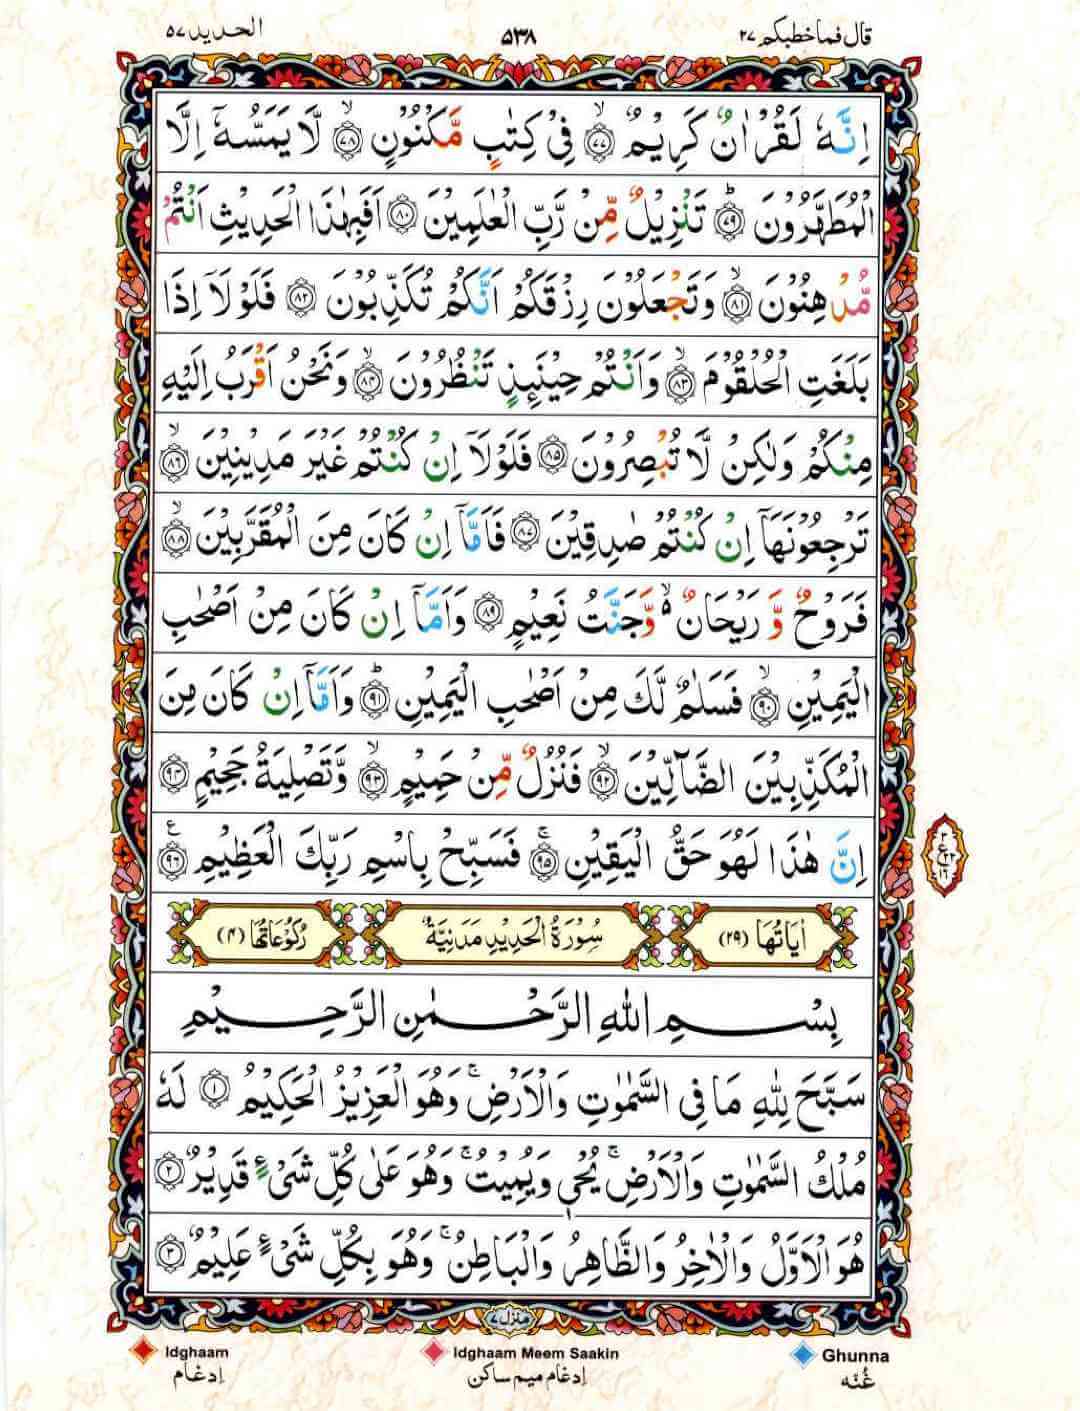 قال فما خطبكم ٢٧ ٥٣٨ الحديد ٥٧
اِنَّهٗ لَقُرْاٰنٌ كَرِيْمٌ ۙ‏﴿۷۷﴾ فِىْ كِتٰبٍ مَّكْنُوْنٍ ۙ‏﴿۷۸﴾ لَّا يَمَسُّهٗۤ اِلَّا
الْمُطَهَّرُوْنَ ؕ‏﴿۷۹﴾ تَنْزِيْلٌ مِّنْ رَّبِّ الْعٰلَمِيْنَ ﴿۸۰﴾ اَفَبِهٰذَا الْحَدِيْثِ اَنْتُمْ
مُّدْهِنُوْنَ ۙ‏﴿۸۱﴾ وَتَجْعَلُوْنَ رِزْقَكُمْ اَنَّكُمْ تُكَذِّبُوْنَ ﴿۸۲﴾ فَلَوْلَاۤ اِذَا
بَلَغَتِ الْحُلْقُوْمَ ۙ‏﴿۸۳﴾ وَاَنْتُمْ حِيْنَئِذٍ تَنْظُرُوْنَ ۙ‏﴿۸۴﴾ وَنَحْنُ اَقْرَبُ اِلَيْهِ
مِنْكُمْ وَلٰكِنْ لَّا تُبْصِرُوْنَ ﴿۸۵﴾ فَلَوْلَاۤ اِنْ كُنْتُمْ غَيْرَ مَدِيْنِيْنَ ۙ‏﴿۸۶﴾
تَرْجِعُوْنَهَاۤ اِنْ كُنْتُمْ صٰدِقِيْنَ ﴿۸۷﴾ فَاَمَّاۤ اِنْ كَانَ مِنَ الْمُقَرَّبِيْنَ ۙ‏﴿۸۸﴾
فَرَوْحٌ وَّ رَيْحَانٌ ۙ۬ وَّجَنَّتُ نَعِيْمٍ ﴿۸۹﴾ وَاَمَّاۤ اِنْ كَانَ مِنْ اَصْحٰبِ
الْيَمِيْنِ ۙ‏﴿۹۰﴾ فَسَلٰمٌ لَّكَ مِنْ اَصْحٰبِ الْيَمِيْنِ ؕ‏﴿۹۱﴾ وَاَمَّاۤ اِنْ كَانَ مِنَ
الْمُكَذِّبِيْنَ الضَّآلِّيْنَ ۙ‏﴿۹۲﴾ فَنُزُلٌ مِّنْ حَمِيْمٍ ۙ‏﴿۹۳﴾ وَّتَصْلِيَةُ جَحِيْمٍ ﴿۹۴﴾
اِنَّ هٰذَا لَهُوَ حَقُّ الْيَقِيْنِ ۚ‏﴿۹۵﴾ فَسَبِّحْ بِاسْمِ رَبِّكَ الْعَظِيْمِ ﴿۹۶﴾ ع
اٰيَاتُهَا (٢٩) سُوْرَةُ الْحَدِيْدِ مَدَنِيَّةٌ رُكُوْعَاتُهَا (٤)
بِسْمِ اللّٰهِ الرَّحْمٰنِ الرَّحِيْمِ
سَبَّحَ لِلّٰهِ مَا فِى السَّمٰوٰتِ وَالْاَرْضِ ۚ وَهُوَ الْعَزِيْزُ الْحَكِيْمُ ﴿۱﴾ لَهٗ
مُلْكُ السَّمٰوٰتِ وَالْاَرْضِ ۚ يُحْىٖ وَيُمِيْتُ ۚ وَهُوَ عَلٰى كُلِّ شَىْءٍ قَدِيْرٌ ﴿۲﴾
هُوَ الْاَوَّلُ وَالْاٰخِرُ وَالظَّاهِرُ وَالْبَاطِنُ ۚ وَهُوَ بِكُلِّ شَىْءٍ عَلِيْمٌ ﴿۳﴾
منزل ٧
Idghaam Idghaam Meem Saakin Ghunna
اِدغام اِدغام ميم ساكن غُنّه